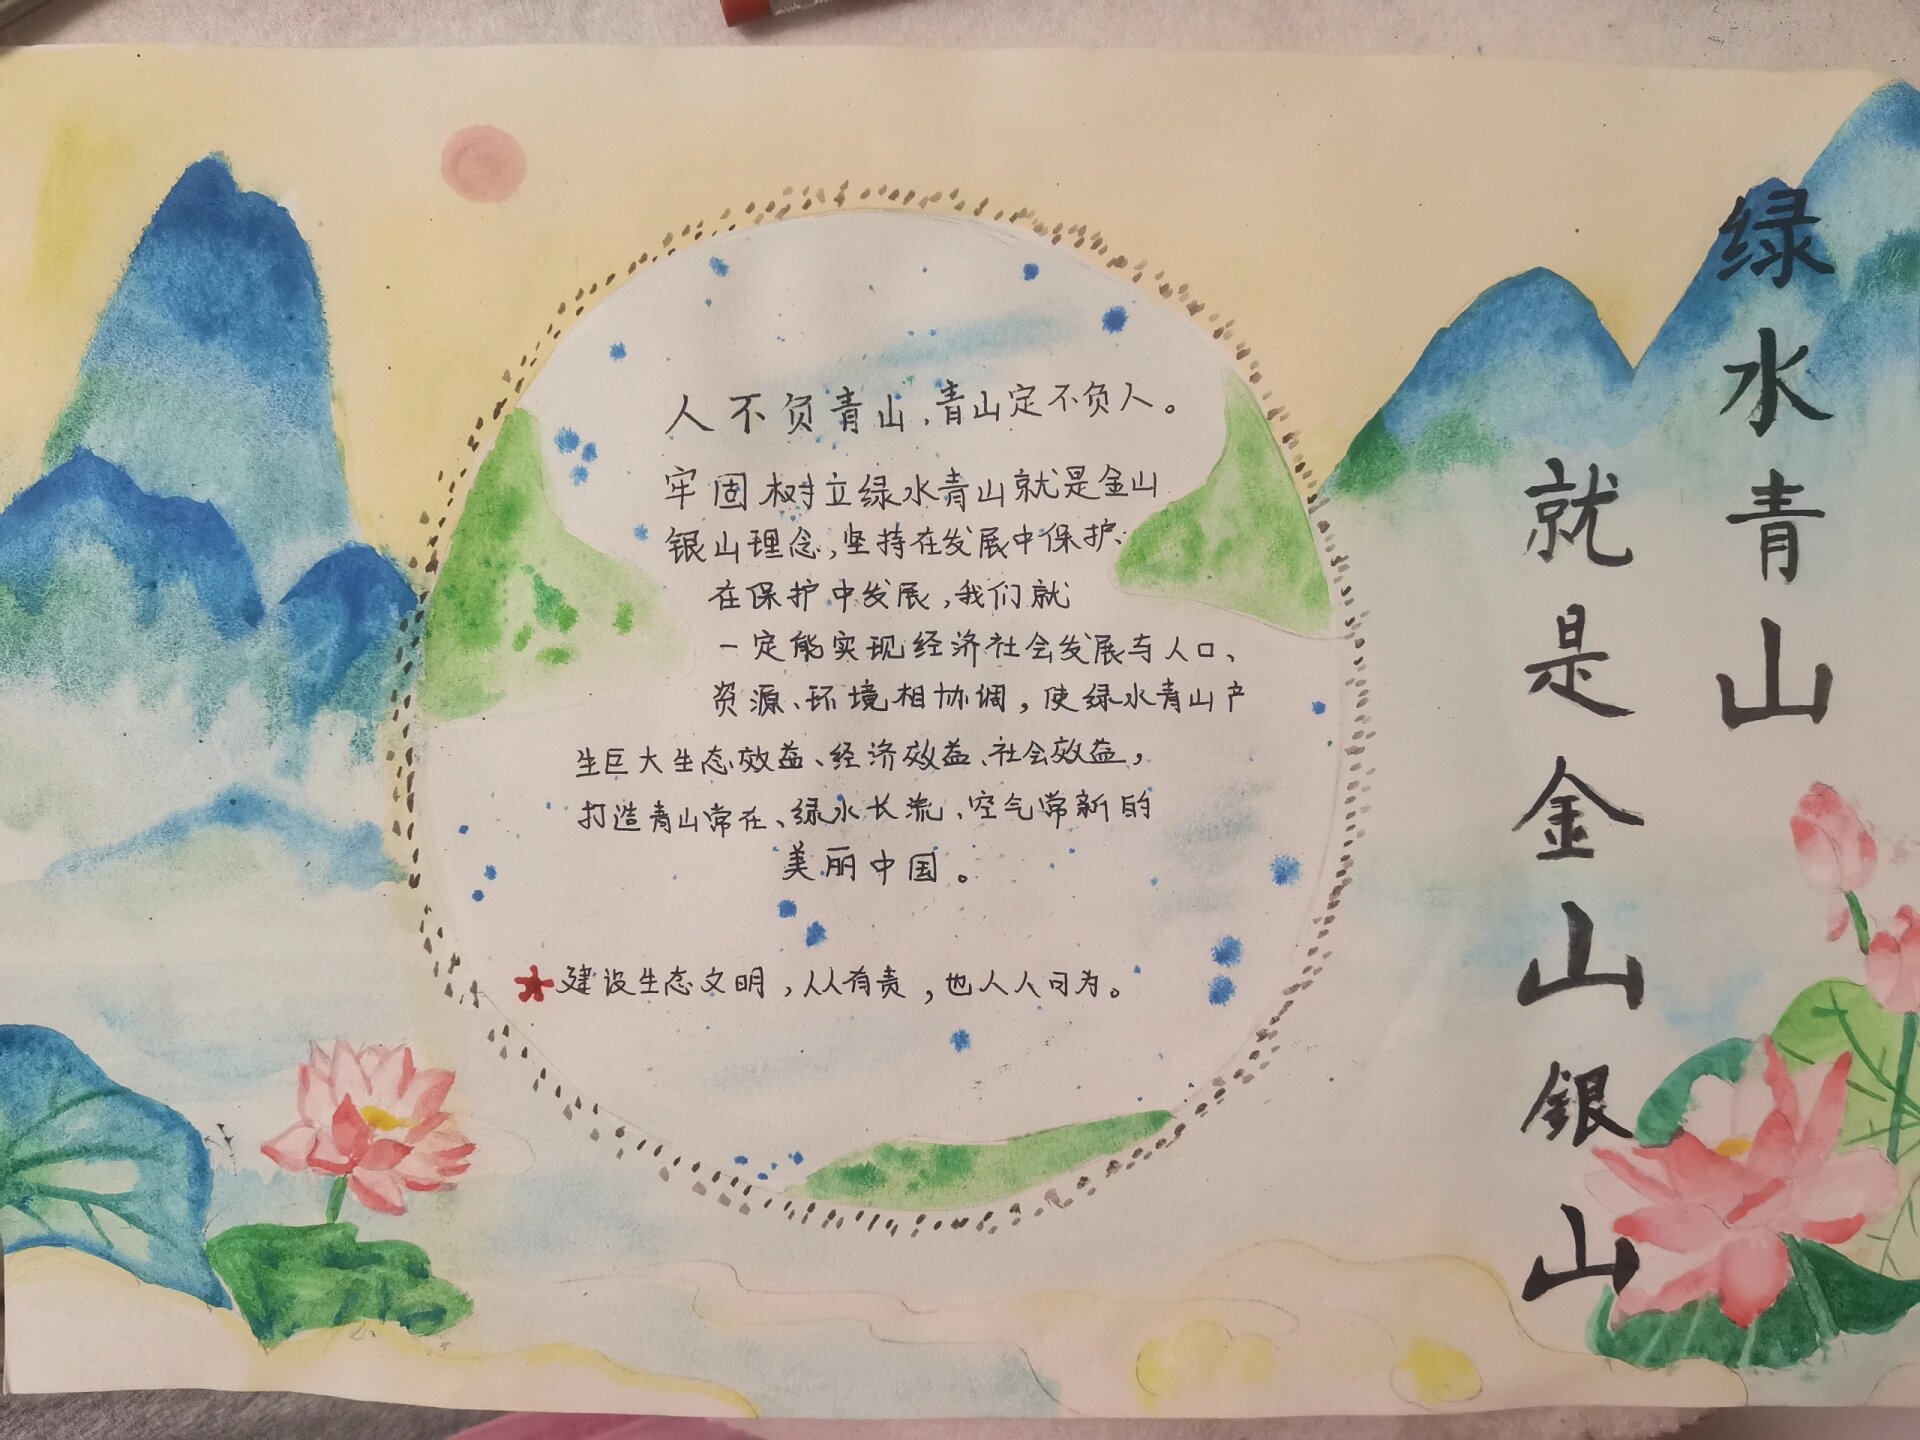 绿水青山
就是金山銀山
人不负青山，青山定不负人。
牢固树立绿水青山就是金山
银山理念，坚持在发展中保护、
在保护中发展，我们就
一定能实现经济社会发展与人口、
资源、环境相协调，使绿水青山产
生巨大生态效益、经济效益、社会效益，
打造青山常在、绿水长流、空气常新的
美丽中国。
建设生态文明，人人有责，也人人可为。